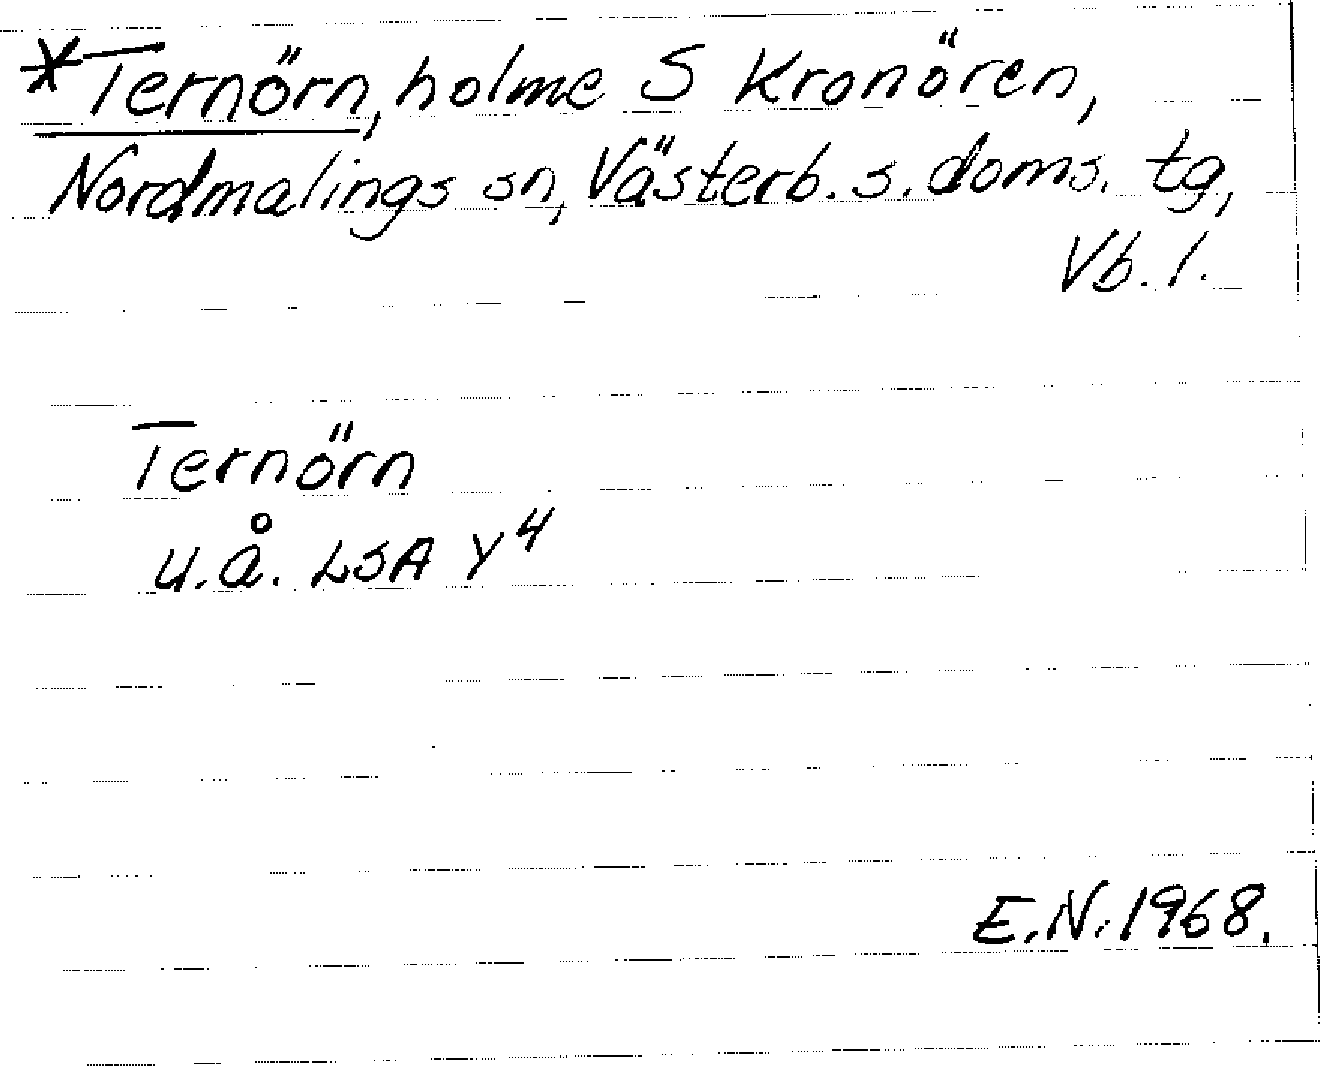 *Ternörn, holme S Kronören,
Nordmalings sn, Västerb. s. doms. tg,
Vb. l.
Ternörn
u.å. LSA Y4
E.N. 1968.